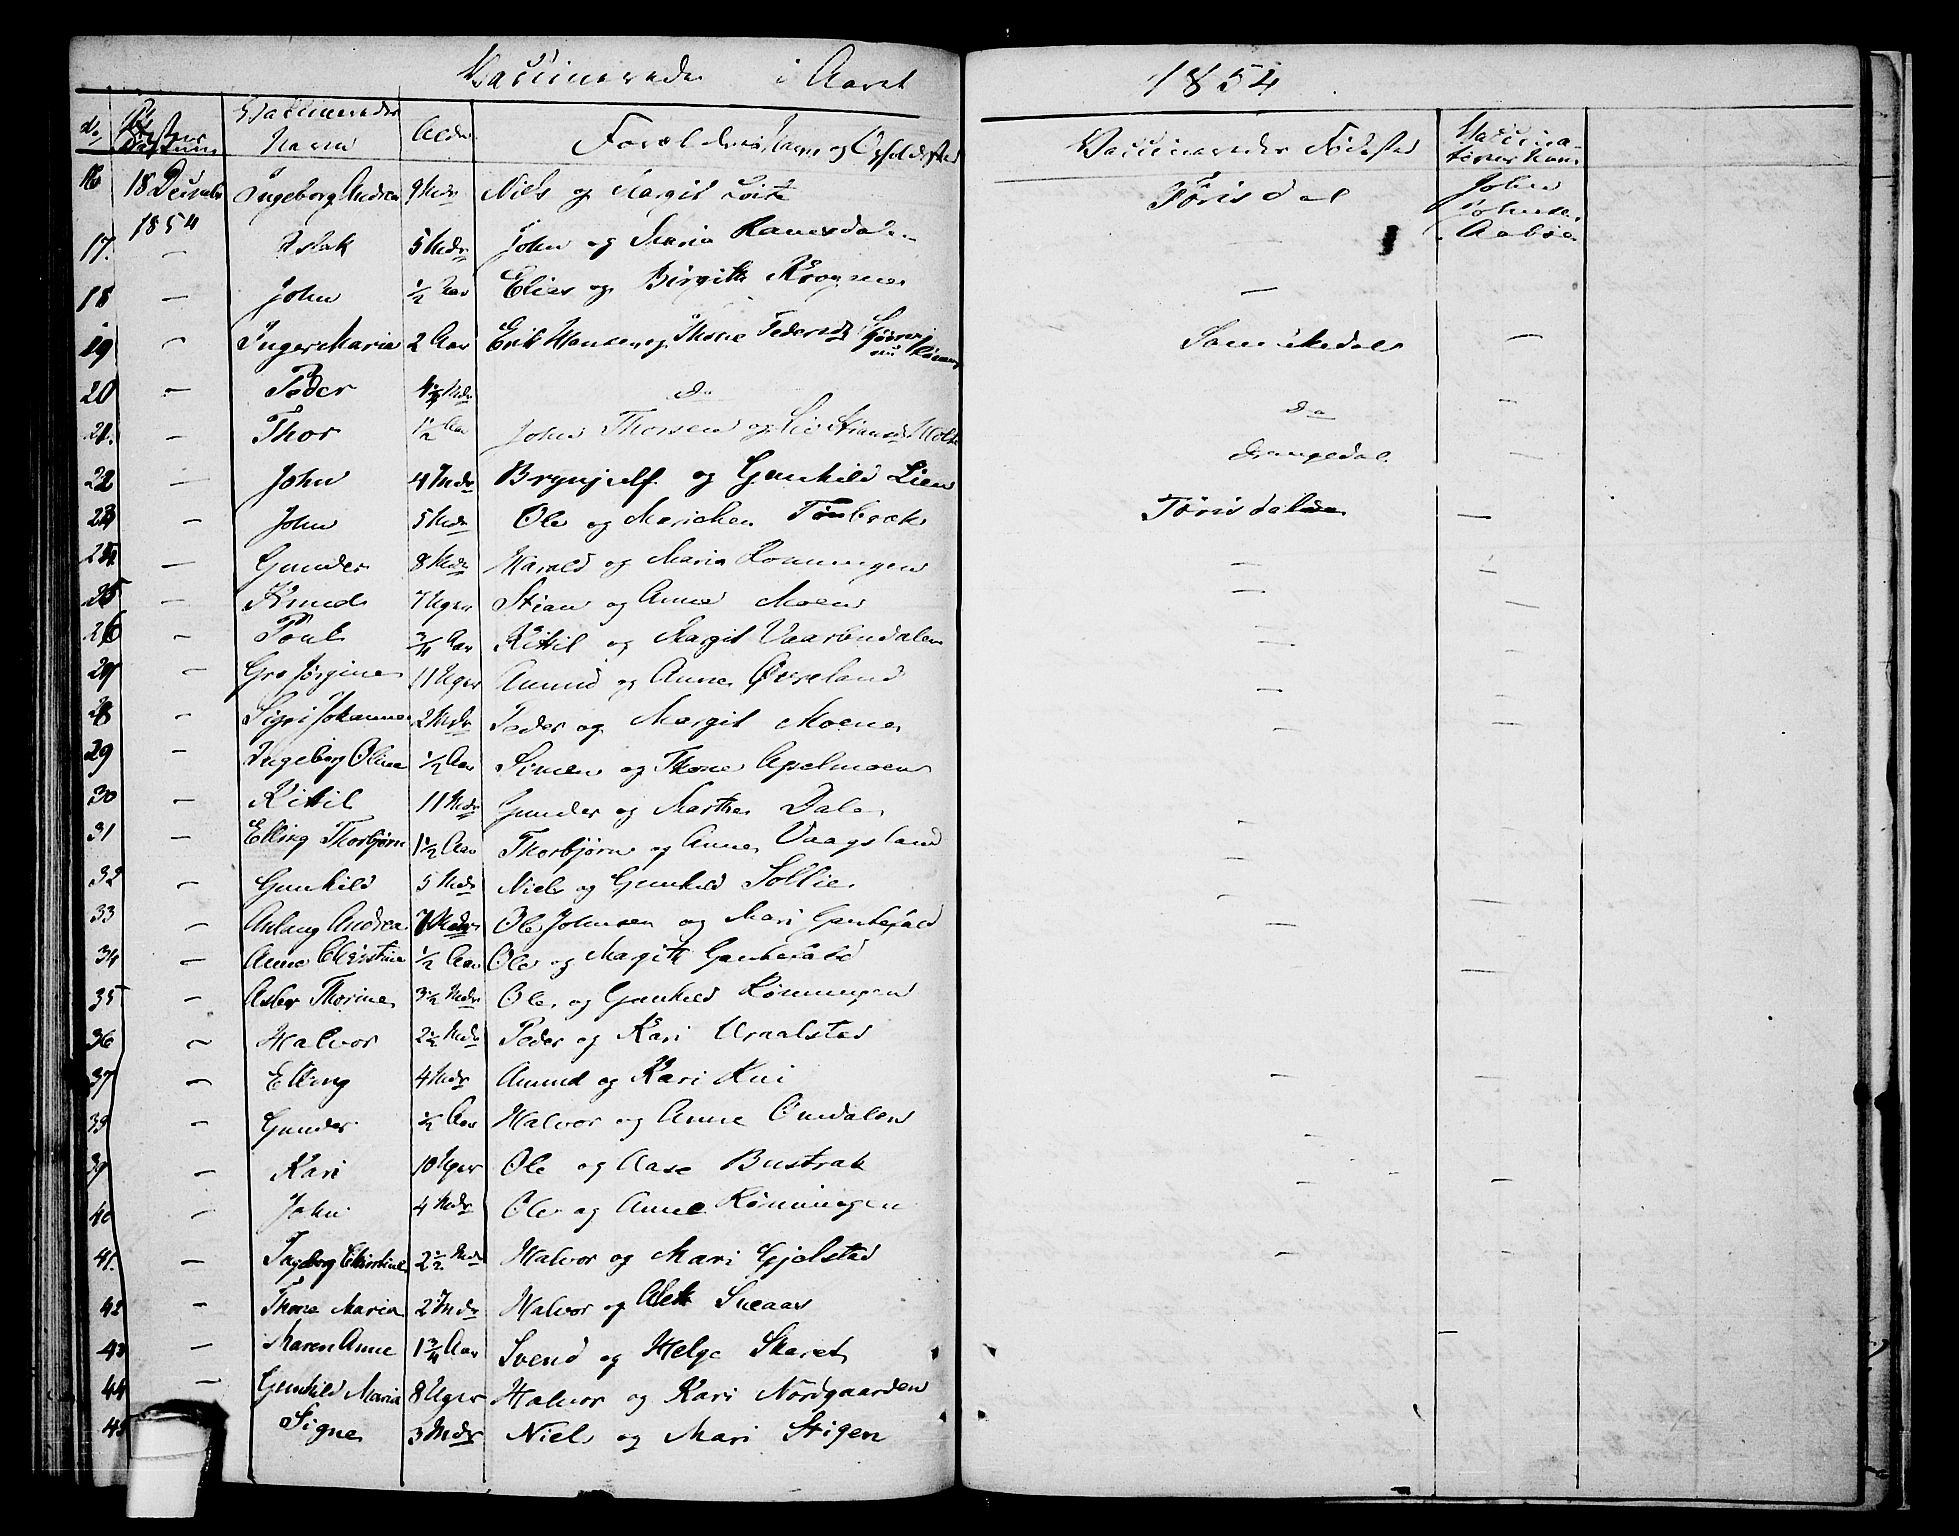 Vaccinerede i Aaret 1854
No Attestens Datum Vaccineredes Navn Alder Forældrenes Navn og Opholdssted Vaccineredes Födested Vaccinationens
16 18 Decembr 1854 Ingeborg Andrea 9 Mdr Niels og Margit Tørisdal John Johnsen Aabøe
17. — Islak 5 Mdr John og Maria Ramsdalen — —
18 — John ½ Aar Elias og Birgith Krogmo — —
19 — Inger Maria 2 Aar Erik Hansen og Thone Pedersd Sannikedal —
20 — Peder 4½ Mdr do do —
21. — Thor 1½ Aar John Thorsen og Liv Drangedal —
22 — John 4 Mdr Brynjulf og Gunhild Lien —
23 — John 5 Mdr Ole og Marichen Tørisdal —
24 — Gunder 8 Mdr Harald og Maria Rønningen —
25 — Knud 7 Uger Stian og Anne Moen —
26 — Poul ¾ Aar Kittil og Margit Vaarlindalen —
27 — Gro Jørgine 11 Uger Amund og Anne Øvreland —
28 — Sigri Johanne 2 Mdr Peder og Margit Moene —
29 — Ingeborg Oline ½ Aar Simen og Thone Apelmoen
30 — Kittil 11 Mdr Gunder og Marthe Dale —
31 — Elling Thorbjørn 1½ Aar Thorbjørn og Anne Vaagsland —
32 — Gunhild 5 Mdr Niels og Gunhild Sollie —
33 — Aslaug Andrea 7 Mdr Ole Johnsen og Mari —
34 — Anne Christine ½ Aar Ole og Margith
35 — Thorine 3½ Mdr Ole og Gunhild Rønningen
36 — Halvor 2½ Mdr Peder og Kari
37 — Elling 4 Mdr Amund og Kari — —
38 — Gunder ½ Aar Halvor og Anne Omdalen
39 — Kari 10 Uger Ole og Aase Bustrak —
40 — John 4 Mdr Ole og Anne Rønningen — —
41. — Ingeborg Christine 2½ Mdr Halvor og Mari Gjelstad —
42 — Thone Maria 2 Mdr Halvor og
43 — Maren Anne 1¾ Aar Svend og Helge Skaret —
44 — Gunhild Maria 8 Uger Halvor og Kari Nordgaarden
45 Signe 3 Mdr Niels og Mari Stigen